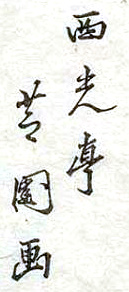 西光亭
芝國画